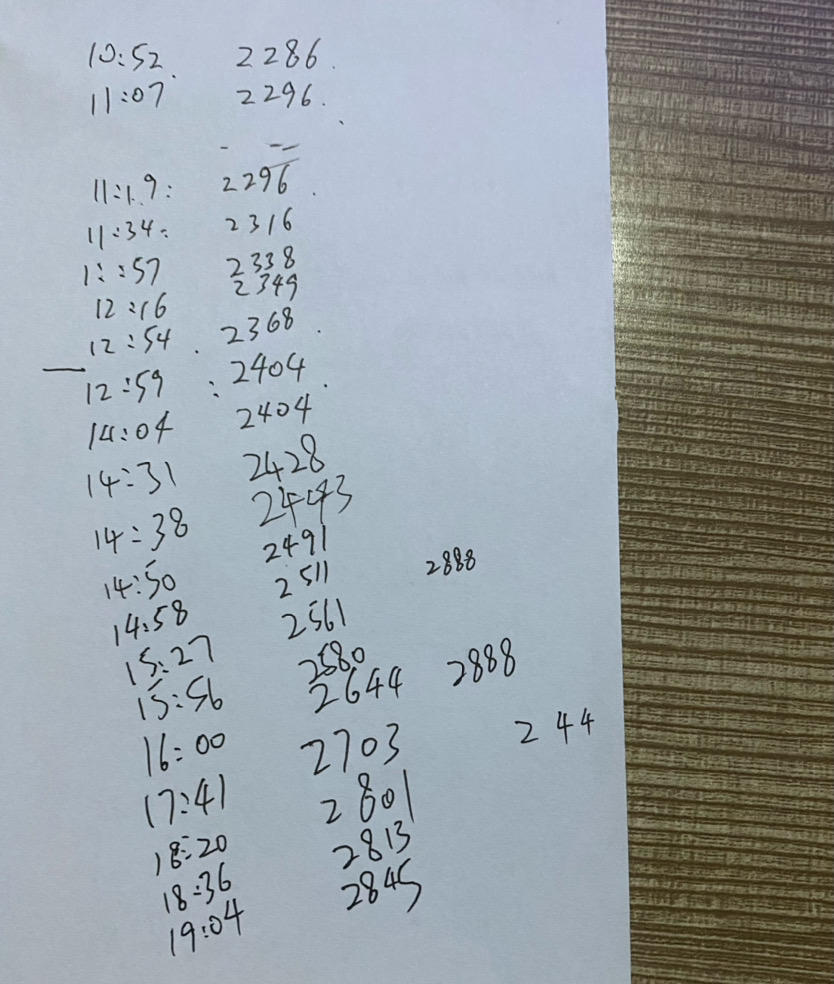 10:52. 2286.
11:07 2296.
11:19: 2296.
11:34: 2316
11:57 2338
12:16 2349
12:54. 2368.
12:59: 2404.
14:04 2404
14:31 2428
14:38 2443
14:50 2491
14:58 2511 2888
15:27 2561
15:56 2580
2644 2888
16:00 2703 244
17:41 2801
18:20 2813
18:36 2845
19:04